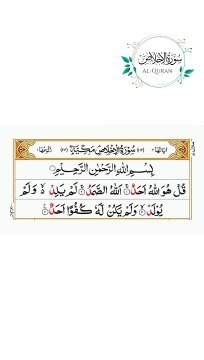 سورة الإخلاص
AL-QURAN
سُوْرَةُ الْاِخْلَاصِ مَكِّيَّةٌ
بِسْمِ اللّٰهِ الرَّحْمٰنِ الرَّحِيْمِ
قُلْ هُوَ اللّٰهُ اَحَدٌ ۚ اَللّٰهُ الصَّمَدُ ۚ لَمْ يَلِدْ ۙ وَلَمْ
يُوْلَدْ ۙ وَلَمْ يَكُنْ لَّهٗ كُفُوًا اَحَدٌ